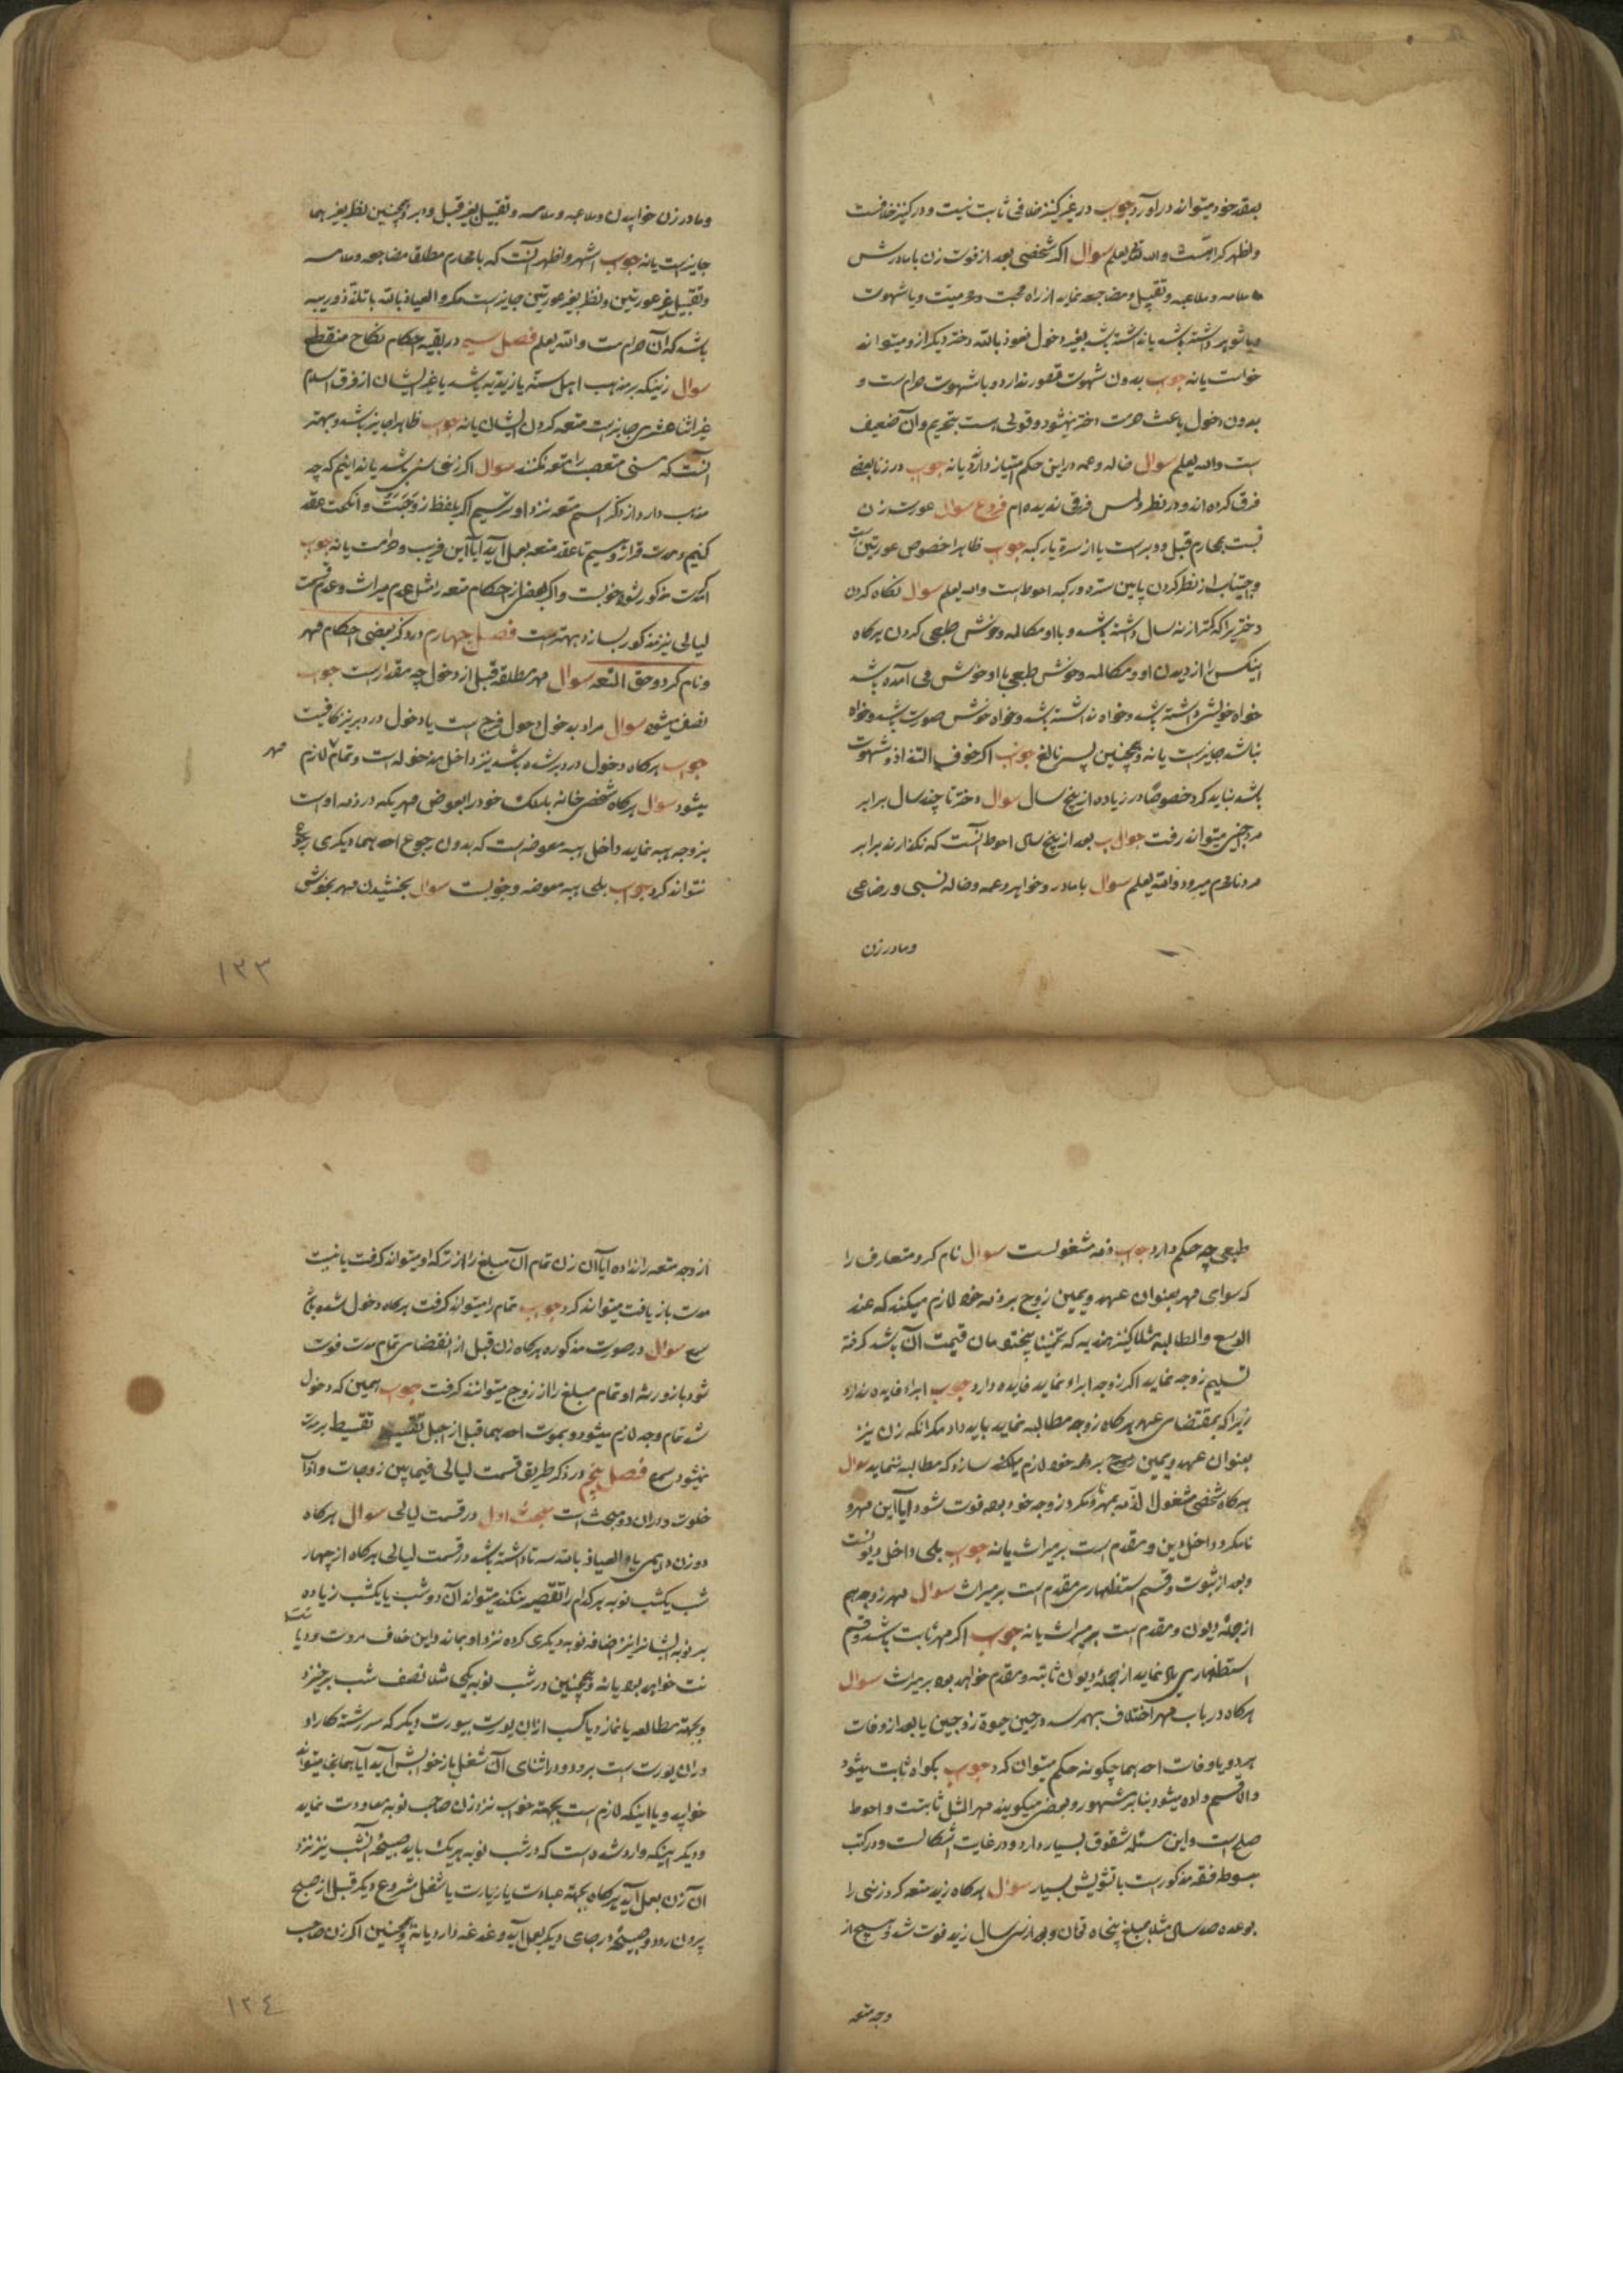 بعقد خود میتواند درآورد جوب در غیر کنیز خلافی ثابت نیست و در کنیز خلافست
واظهر کراهتست والله تعالی یعلم سوال اگر شخصی بعد از فوت زن با مادرش
ملامسه و ملاعبه و تقبیل و مضاجعه نماید از راه محبت و محرمیت و یا شهوت
و یا شوهر داشته باشد یا نداشته باشد بغیر دخول نعوذ بالله دختر دیگر از و میتواند
خواست یا نه جوب بدون شهوت قصور ندارد و با شهوت حرام است و
بدون دخول باعث حرمت دختر نمیشود و قولی هست بتحریم و آن ضعیف
است والله یعلم سوال خاله و عمه در این حکم امتیاز دارد یا نه جوب در زنا بعضی
فرق کرده اند و در نظر و لمس فرقی ندیده ام فروع سوال عورت زن
نسبت بمحارم قبل و دبر است یا از سره تا رکبه جوب ظاهرا خصوص عورتین است
و اجتناب از نظر کردن بمابین سره و رکبه احوط است والله یعلم سوال نگاه کردن
دختریرا که کمتر از نه سال داشته باشد و با او مکالمه و خوش طبعی کردن هرگاه
اینکس را از دیدن او و مکالمه و خوش طبعی با او خوش می آمده باشد
خواه خویشی داشته باشد و خواه نداشته باشد و خواه خوش صورت باشد و خواه
نباشد جایز است یا نه و همچنین پسر نابالغ جوب اگر خوف التذاذ و شهوت
باشد نباید کرد خصوصا در زیاده از پنج سال سوال دختر تا چند سال برابر
مرد اجنبی میتواند رفت جوالب بعد از پنج سال احوط آنست که نگذارند برابر
مرد نامحرم میرود والله یعلم سوال با مادر و خواهر و عمه و خاله نسبی و رضاعی
و مادر زن
و مادر زن خوابیدن و ملاعبه و ملامسه و تقبیل بغیر قبل و دبر و همچنین نظر بغیر هما
جایز است یا نه جوب اشهر و اظهر آنست که با محارم مطلقا مضاجعه و ملامسه
و تقبیل بغیر عورتین و نظر بغیر عورتین جایز است مگر والعیاذ بالله با تلذذ و ریبه
باشد که آن حرام است والله یعلم فصل سیم در بقیه احکام نکاح منقطع
سوال زنیکه بر مذهب اهل سنه یا زیدیه باشد یا غیر ایشان از فرق اسلام
غیر اثنا عشری جایز است متعه کردن ایشان یا نه جوب ظاهرا جایز باشد و بهتر
آنست که سنی متعصب را متعه نکنند سوال اگر زنی سنی باشد یا ندانیم که چه
مذهب دارد از ذکر اسم متعه نزد او ترسیم اگر بلفظ زوجت و انکحت عقد
کنیم و مدت قرار دهیم تا عقد متعه بعمل آید آیا این فریب و حرامست یا نه جوب
اگر مدت مذکور شود خوبست و اگر بعضی از احکام متعه را مثل عدم میراث و عدم قسمت
لیالی نیز مذکور بسازد بهتر است فصل چهارم در ذکر بعضی احکام مهر
و نام کرد و حق المتعه سوال مهر مطلقه قبل از دخول چه مقدار است جوب
نصف میشود سوال مراد بدخول دخول فرج است یا دخول در دبر نیز کافیست
جوب هرگاه دخول در دبر شده باشد نیز داخل مدخوله است و تمام مهر لازم
میشود سوال هرگاه شخصی خانه یا ملک خود را بعوض مهریکه در ذمه اوست
بزوجه هبه نماید داخل هبه معوضه است که بدون رجوع احدهما دیگری رجوع
نتواند کرد جوب بلی هبه معوضه و خوبست سوال بخشیدن مهر بخوش
۱۳۳
طبعی چه حکم دارد جوب ذمه مشغولست سوال نام کرد متعارف را
که سوای مهر بعنوان عهد و یمین زوج بر ذمه خود لازم میکند که عند
الوسع والمطالبه مثلا کنیز هندیه که تخمینا پنجتومان قیمت آن باشد گرفته
تسلیم زوجه نماید اگر زوجه ابراء نماید فایده دارد جوب ابراء فایده ندارد
زیرا که بمقتضای عهد هرگاه زوجه مطالبه نماید باید داد مگر آنکه زن نیز
بعنوان عهد و یمین بر ذمه خود لازم سازد که مطالبه ننماید سوال
هرگاه شخصی مشغول الذمه بمهر و نامکرد زوجه خود بوده فوت شود آیا این مهر و
نامکرد داخل دین و مقدم است بر میراث یا نه جوب بلی داخل دیونست
و بعد از ثبوت و قسم استظهاری مقدم است بر میراث سوال مهر زوجه هم
از جمله دیون و مقدم است بر میراث یا نه جوب اگر مهر ثابت باشد و قسم
استظهاری یاد نماید از جمله دیون ثابته و مقدم خواهد بود بر میراث سوال
هرگاه در باب مهر اختلاف بهم رسد در حین حیوة زوجین یا بعد از وفات
هر دو یا وفات احدهما چگونه حکم میتوان کرد جوب بگواه ثابت میشود
والا قسم داده میشود بنا بر مشهور و بعضی میگویند مهر المثل ثابتست و احوط
صلح است و این مسئله شقوق بسیار دارد و در غایت اشکالست و در کتب
مبسوط فقه مذکور است با تشویش بسیار سوال هرگاه زید متعه کرد زنی را
بوعده صد سال مثلا بمبلغ پنجاه تومان و بعد از سی سال زید فوت شد و هیچ از
وجه متعه
از وجه متعه را نداده آیا آن زن تمام آن مبلغ را از ترکه او میتواند گرفت یا نسبت
مدت بازیافت میتواند کرد جوب تمام را میتواند گرفت هرگاه دخول شده باشد
سوال در صورت مذکوره هرگاه زن قبل از انقضای تمام مدت فوت
شود باز ورثه او تمام مبلغ را از زوج میتوانند گرفت جوب همین که دخول
شد تمام وجه لازم میشود و بموت احدهما قبل از اجل تقسیط بر مدت
نمیشود فصل پنجم در ذکر طریق قسمت لیالی فیمابین زوجات و آداب
خلوت و در آن دو مبحث است مبحث اول در قسمت لیالی سوال هرگاه
دو زن دایمی یا والعیاذ بالله سه تا داشته باشد در قسمت لیالی هرگاه از چهار
شب یکشب نوبه هر کدام را تقصیر نکند میتواند آن دو شب یا یکشب زیاده
بر نوبه ایشانرا نیز اضافه نوبه دیگری کرده نزد او بماند و این خلاف مروت و دیانت
نیست خواهد بود یا نه و همچنین در شب نوبه یکی مثلا نصف شب برخیزد
و بجهته مطالعه یا نماز و یا کسب از آن یورت بیورت دیگر که سررشته کار او
در آن یورت است برود و در اثنای آن شغل باز خوابش آید آیا همانجا میتواند
خوابید و یا اینکه لازم است بجهته خواب نزد زن صاحب نوبه معاودت نماید
و دیگر اینکه وارد شده است که در شب نوبه هر یک باید صبیحه آنشب نیز نزد
آن زن بعمل آید هرگاه بجهته عبادت یا زیارت یا شغل مشروع دیگر قبل از صبح
بیرون رود و صبیحه در جای دیگر بعمل آید دغدغه دارد یا نه و همچنین اگر زن صاحب
۱۳٤